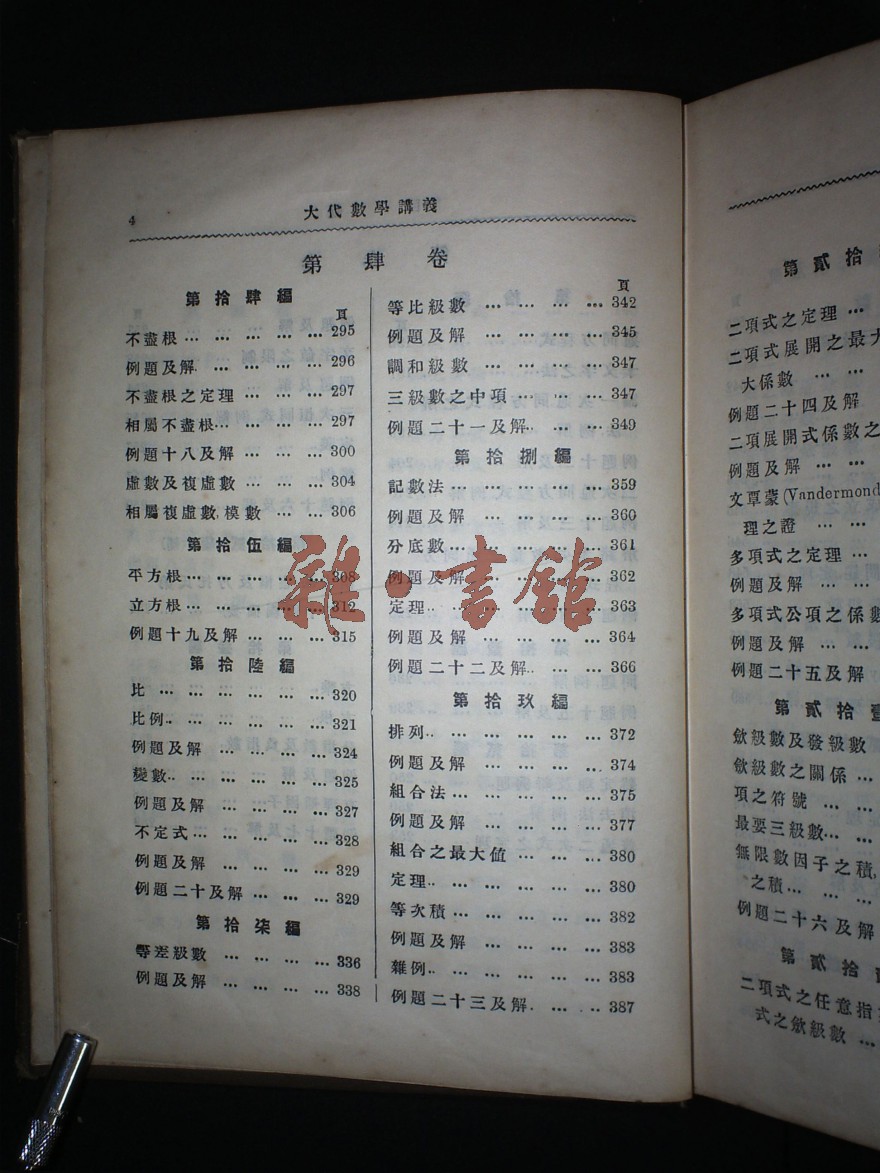 4
大代數學講義
第肆卷
第拾肆編
頁
不盡根 … … … … … 295
例題及解 … … … … 296
不盡根之定理 … … … 297
相屬不盡根… … … … 297
例題十八及解 … … … 300
虛數及複虛數 … … … 304
相屬複虛數,模數 … … 306
第拾伍編
平方根 … … … … … 308
立方根… … … … … 312
例題十九及解 … … … 315
第拾陸編
比 … … … … … … 320
比例.. … … … … … 321
例題及解 … … … … 324
變數.. … … … … … 325
例題及解 … … … … 327
不定式.. … … … … 328
例題及解 … … … … 329
例題二十及解 … … … 329
第拾柒編
等差級數 … … … … 336
例題及解 … … … … 338
頁
等比級數 … … … … 342
例題及解 … … … … 345
調和級數 … … … … 347
三級數之中項 … … … 347
例題二十一及解.. … … 349
第拾捌編
記數法… … … … … 359
例題及解 … … … … 360
分底數… … … … … 361
例題及解 … … … … 362
定理.. … … … … … 363
例題及解 … … … … 364
例題二十二及解.. … … 366
第拾玖編
排列.. … … … … … 372
例題及解 … … … … 374
組合法… … … … … 375
例題及解 … … … … 377
組合之最大値 … … … 380
定理.. … … … … … 380
等次積… … … … … 382
例題及解 … … … … 383
雜例.. … … … … … 383
例題二十三及解. … … 387
雜·書館
第貳拾
二項式之定理 …
二項式展開之最大
大係數 … …
例題二十四及解
二項展開式係數之
例題及解 … …
文覃蒙(Vandermond
理之證 … …
多項式之定理 …
例題及解 … …
多項式公項之係數
例題及解 … …
例題二十五及解
第貳拾壹
斂級數及發級數
斂級數之關係 …
項之符號 … …
最要三級數… …
無限數因子之積,
之積… … …
例題二十六及解
第貳拾
二項式之任意指
式之斂級數 …